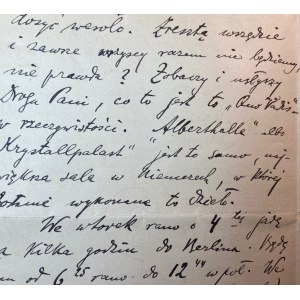 dosyć wesoło. Zresztą wszędzie
i zawsze wszyscy razem nie będziemy,
nie prawda? Zobaczy i usłyszy
Droga Pani, co to jest to „Quo Vadis"
w rzeczywistości. „Alberthalle" albo
Krystallpalast" jest to samo, naj-
większa sala w Niemczech, w której
wykonane to dzieło.
We wtorek rano o 4 tej jadę
na kilka godzin do Berlina. Będę
tam od 6 25 rano do 12 44 w poł. We